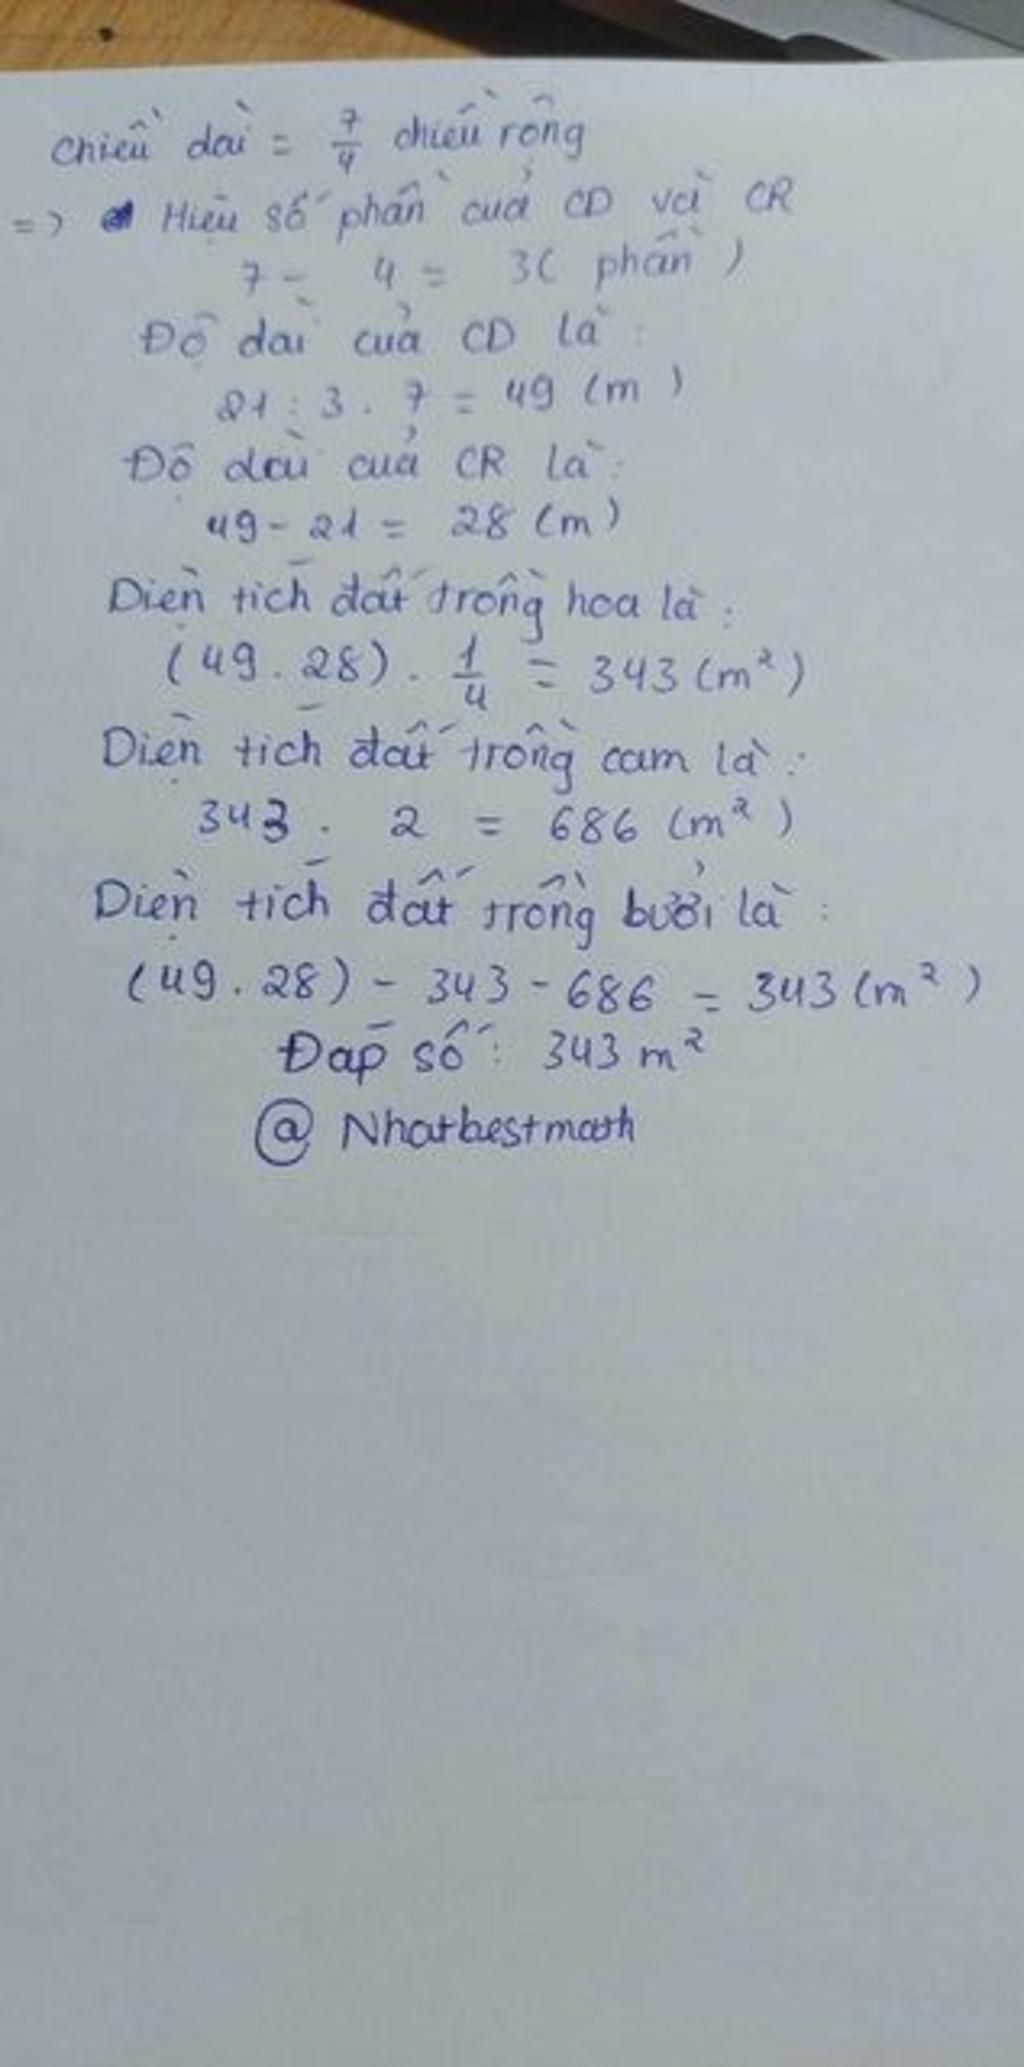 Chiều dài = 7/4 chiều rộng
=> Hiệu số phần của CD và CR
7 - 4 = 3( phần )
Độ dài của CD là :
21 : 3 . 7 = 49 (m)
Độ dài của CR là :
49 - 21 = 28 (m)
Diện tích đất trồng hoa là :
(49 . 28) . 1/4 = 343 (m²)
Diện tích đất trồng cam là :
343 . 2 = 686 (m²)
Diện tích đất trồng bưởi là :
(49 . 28) - 343 - 686 = 343 (m²)
Đáp số : 343 m²
@ Nhatbestmath